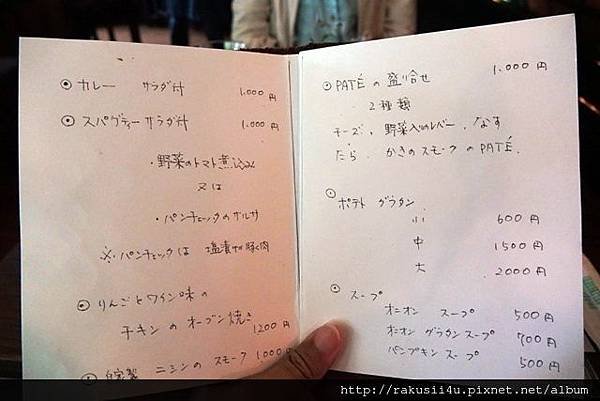 ⦿ カレー サラダ付 1.000円
⦿ スパゲティー サラダ付 1.000円
・野菜のトマト煮込み
又は
・パンチェッタのサルサ
※・パンチェッタは 塩漬け豚肉
⦿ りんごとワイン味の
チキンの オーブン焼き 1200円
⦿ 自家製 ニシンの スモーク 1000円
⦿ PATÉ の 盛り合せ 1.000円
2種類
チーズ、野菜入りのレバー、なす
たら、かきのスモークのPATÉ.
⦿ ポテト グラタン
小 600円
中 1500円
大 2000円
⦿ スープ
オニオン スープ 500円
オニオン グラタンスープ 700円
パンプキン スープ 500円
http://rakusii4u.pixnet.net/album